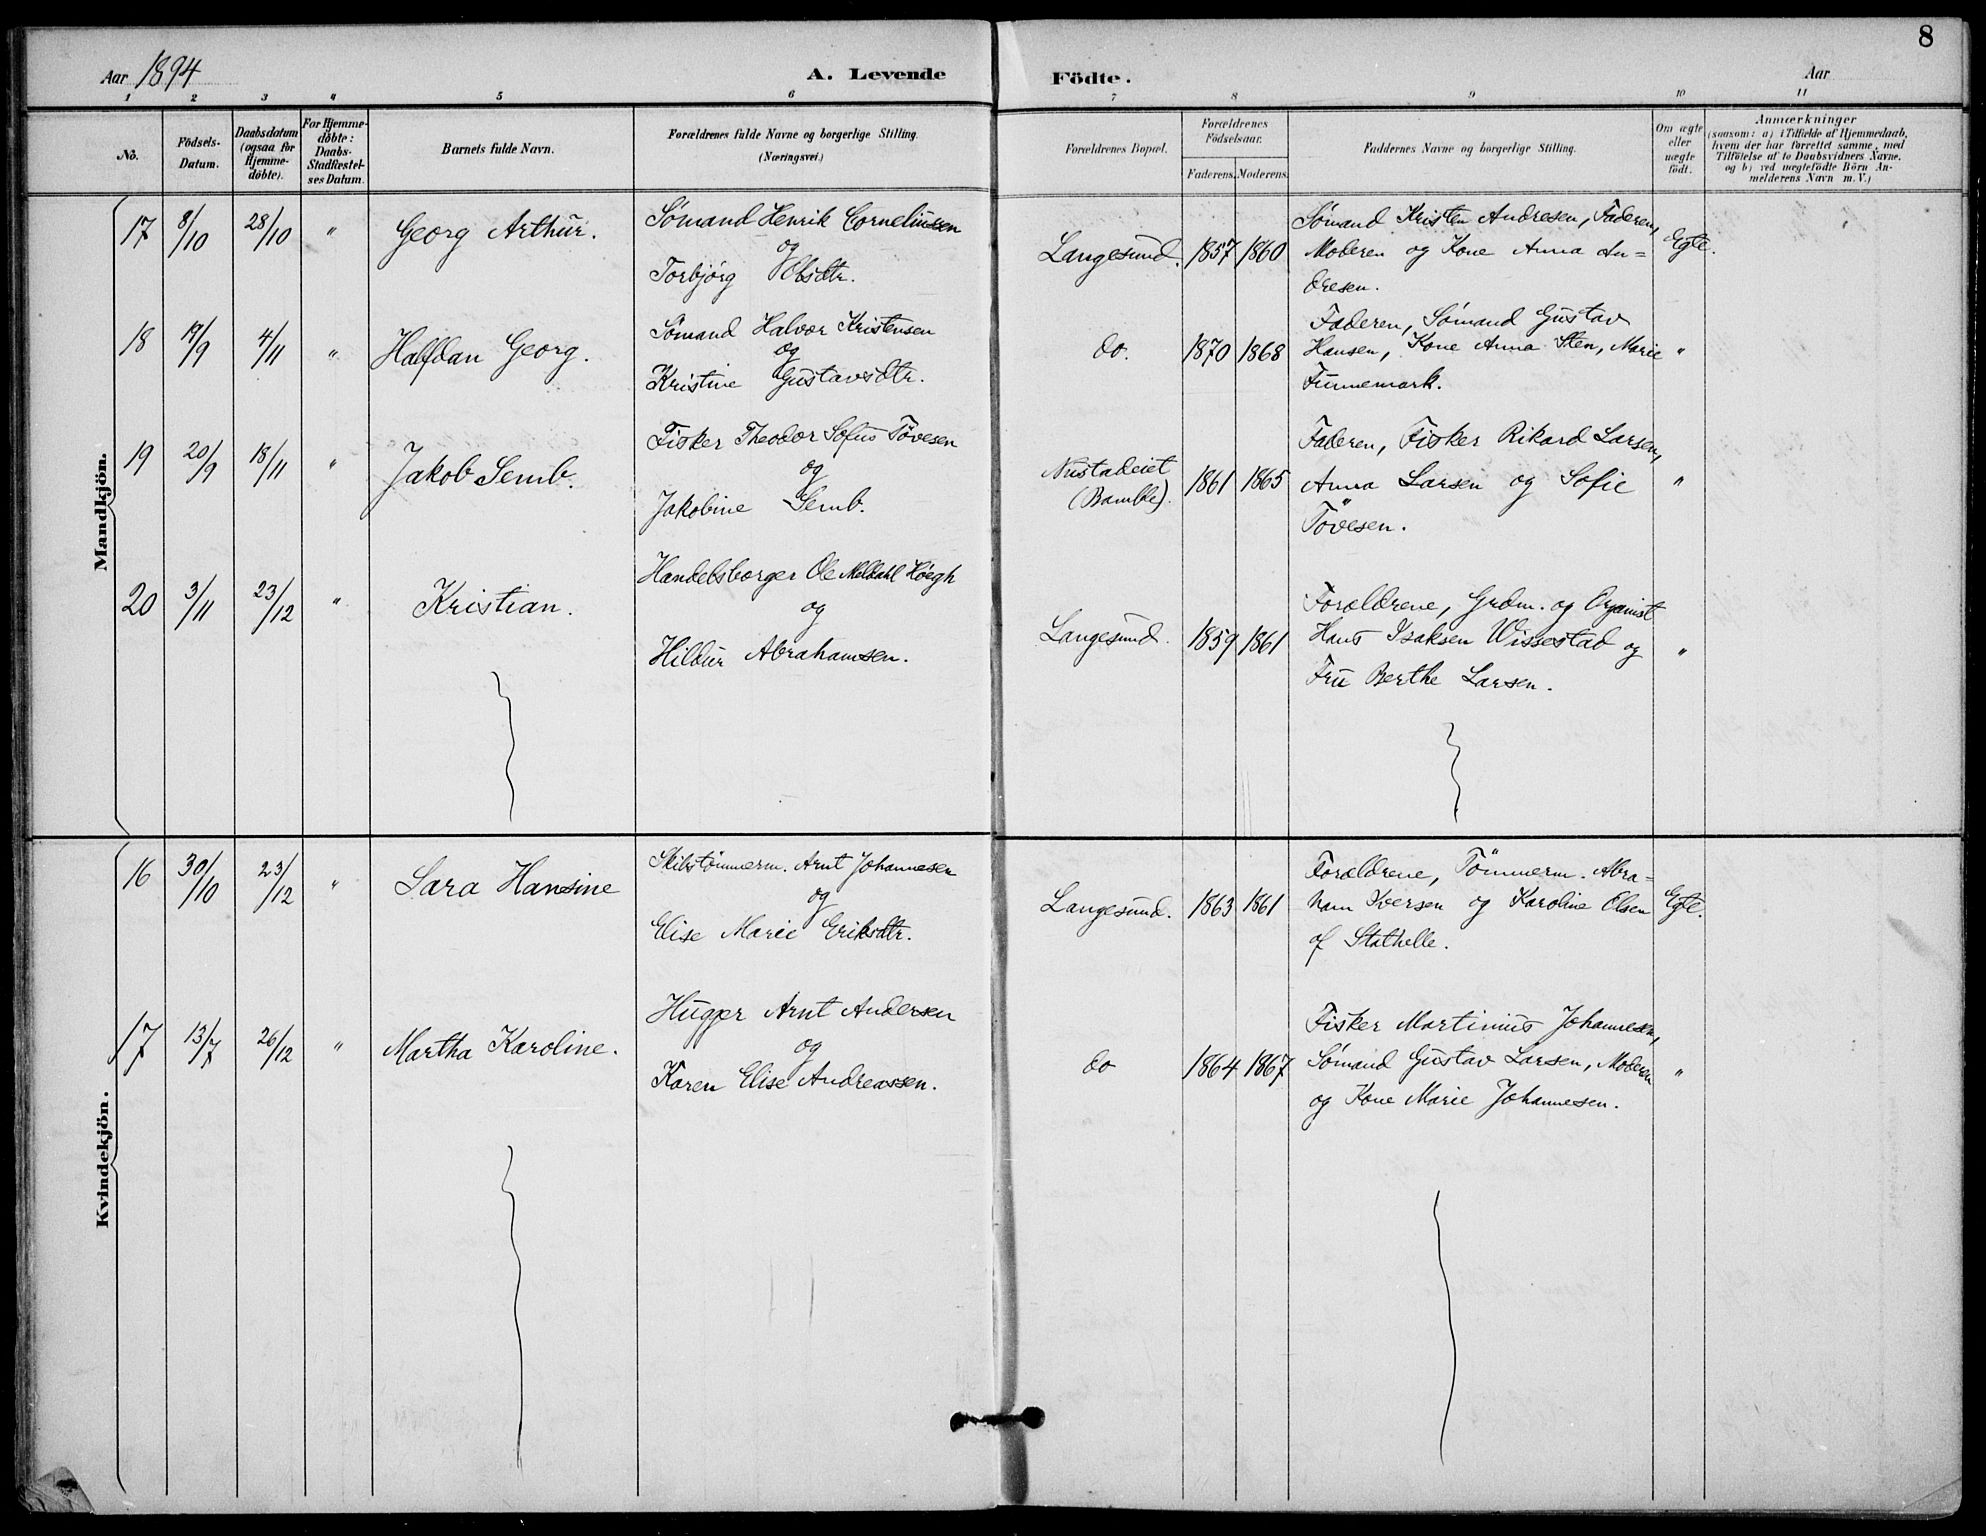 8
Aar 1894
A. Levende Födte.
Aar
1 2 3 4 5 6 7 8 9 10 11
No.
Födsels-Datum.
Daabsdatum (ogsaa for Hjemme-döbte).
For Hjemme-döbte: Daabs-Stadfæstel-ses Datum.
Barnets fulde Navn.
Forældrenes fulde Navne og borgerlige Stilling.
(Næringsvei.)
Forældrenes Bopæl.
Forældrenes Födselsaar.
Faderens. Moderens.
Faddernes Navne og borgerlige Stilling.
Om ægte eller uægte födt.
Anmærkninger
(saasom: a) i Tilfælde af Hjemmedaab,
hvem der har forrettet samme, med
Tilföielse af to Daabsvidners Navne,
og b) ved uægtefödte Börn An-
melderens Navn m. V.)
Mandkjön.
17 8/10 28/10 " Georg Arthur.
Sømand Henrik Corneliussen
og
Torbjørg Olsdtr.
Langesund. 1857 1860
Sømand Kristen Andresen, Faderen,
Moderen og Kone Anna An-
dresen.
Egte.
18 17/9 4/11 " Halfdan Georg.
Sømand Halvor Kristensen
og
Kristine Gustavsdtr.
do. 1870 1868
Faderen, Sømand Gustav
Hansen, Kone Anna Sten, Marie
Funnemark.
"
19 20/9 18/11 " Jakob Semb.
Fisker Theodor Sofus Tövesen
og
Jakobine Semb.
Nustadeiet
(Bamble). 1861 1865
Faderen, Fisker Rikard Larsen,
Anna Larsen og Sofie
Tövesen.
"
20 3/11 23/12 " Kristian.
Handelsborger Ole Meldahl Høegh
og
Hildur Abrahamsen.
Langesund. 1859 1861
Forældrene, Grdm. og Organist
Hans Isaksen Wissestad og
Fru Berthe Larsen.
"
Kvindekjön.
16 30/10 23/12 " Sara Hansine
Skibstömmerm. Arnt Johannesen
og
Elise Marie Eriksdtr.
Langesund. 1863 1861
Forældrene, Tömmerm. Abra-
ham Iversen og Karoline Olsen
af Stathelle.
Egte.
17 13/7 26/12 " Martha Karoline.
Hugger Arnt Andersen
og
Karen Elise Andreassen.
do 1864 1867
Fisker Martinius Johannesen,
Sømand Gustav Larsen, Moderen
og Kone Marie Johannesen.
"